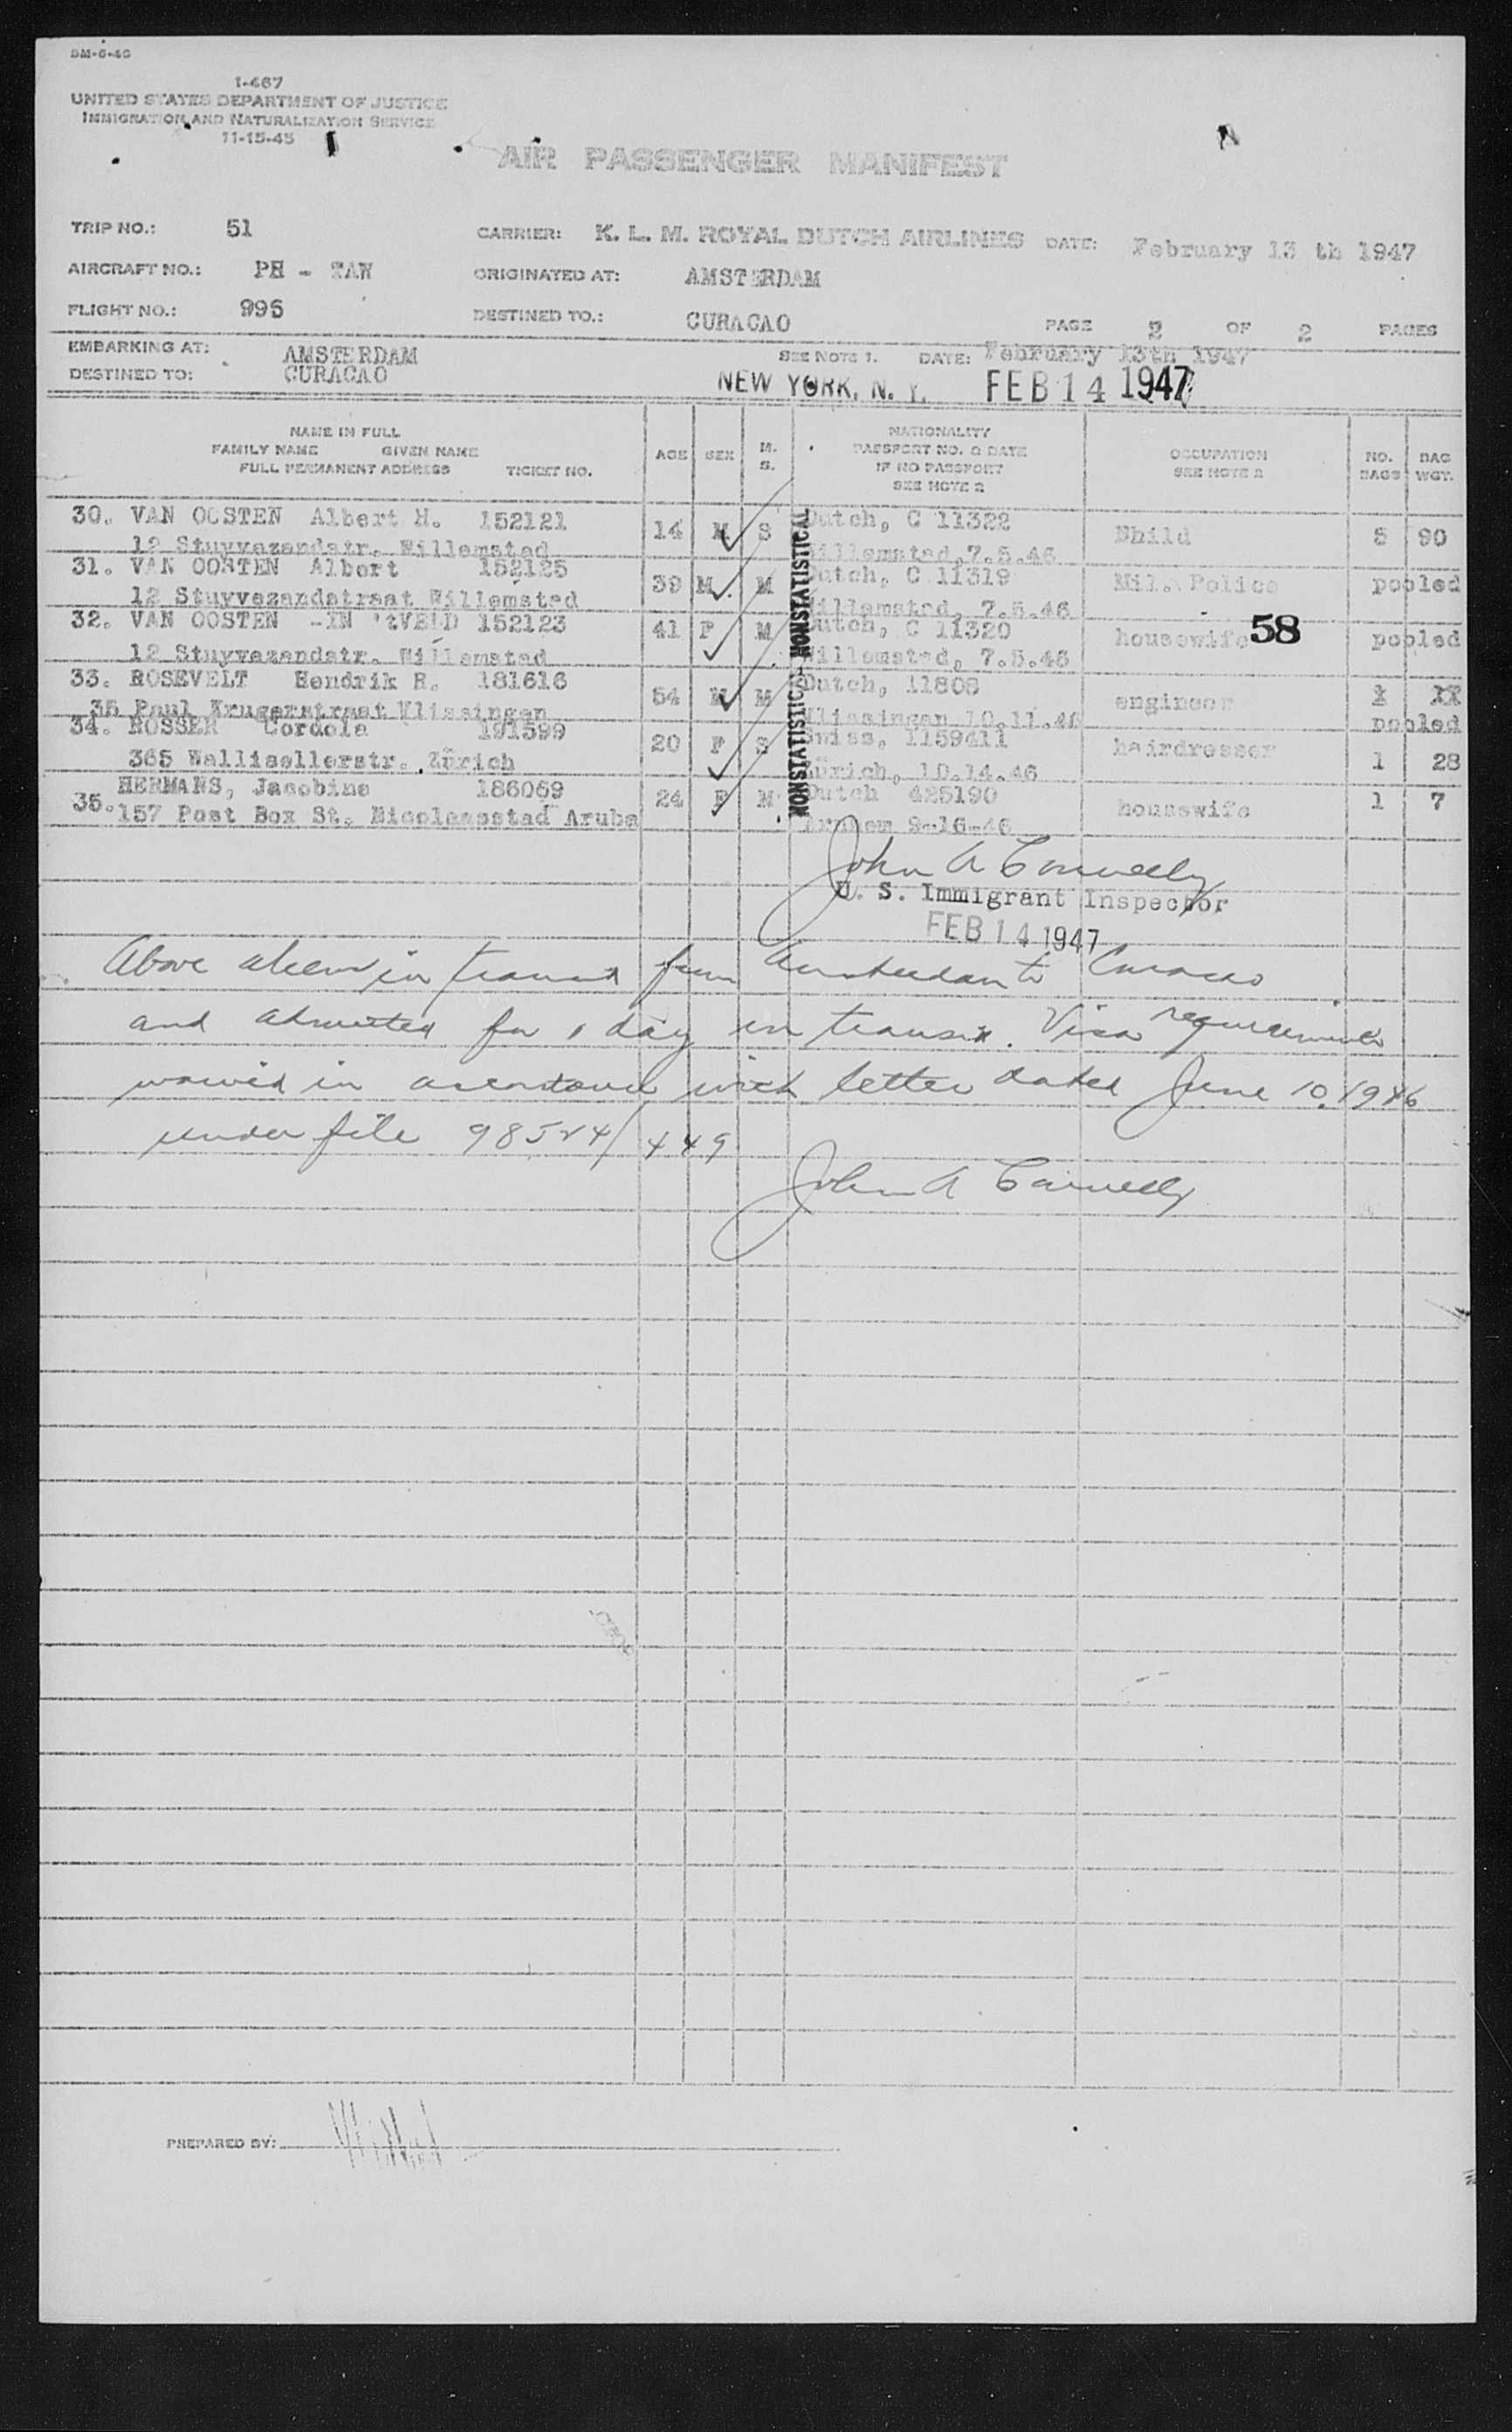 BM-6-46
I-467
UNITED STATES DEPARTMENT OF JUSTICE
IMMIGRATION AND NATURALIZATION SERVICE
11-15-45
AIR PASSENGER MANIFEST
TRIP NO.: 51 CARRIER: K. L. M. ROYAL DUTCH AIRLINES DATE: February 13 th 1947
AIRCRAFT NO.: PH - TAN ORIGINATED AT: AMSTERDAM
FLIGHT NO.: 995 DESTINED TO.: CURACAO PAGE 2 OF 2 PAGES
EMBARKING AT: AMSTERDAM SEE NOTE 1. DATE: February 13th 1947
DESTINED TO: CURACAO NEW YORK, N. Y. FEB 14 1947
NAME IN FULL
FAMILY NAME GIVEN NAME
FULL PERMANENT ADDRESS TICKET NO.
AGE SEX M. S.
NATIONALITY
PASSPORT NO. & DATE
IF NO PASSPORT
SEE NOTE 2
OCCUPATION
SEE NOTE 2
NO. BAGS BAG WGT.
NONSTATISTICAL NONSTATISTICAL
30. VAN OOSTEN Albert H. 152121 14 M S Dutch, C 11322 Bhild 5 90
12 Stuyvezandstr. Willemstad Willemstad, 7.5.46
31. VAN OOSTEN Albert 152125 39 M. M Dutch, C 11319 Mil. Police pooled
12 Stuyvezandstraat Willemstad Willemstad, 7.5.46
32. VAN OOSTEN -IN 'tVELD 152123 41 F M Dutch, C 11320 housewife 58 pooled
12 Stuyvezandstr. Willemstad Willemstad, 7.5.46
33. ROSEVELT Hendrik R. 181616 54 M M Dutch, 11808 engineer
35 Paul Krugerstraat Vlissingen Vlissingen 10.11.46 pooled
34. ROSSER Cordola 191599 20 F S Swiss, 1159411 hairdresser 1 28
365 Wallisellerstr. Zürich Zürich, 10.14.46
35. HERMANS, Jacobina 186069 24 F M Dutch 425190 housewife 1 7
157 Post Box St. Nicolaasstad Aruba Arnhem 9-16-46
John A Connelly
U. S. Immigrant Inspector
FEB 14 1947
Above aliens in transit from Amsterdam to Curacao
and admitted for 1 day in transit. Visa requirements
waived in accordance with letter dated June 10, 1946
under file 98524/449
John A Connelly
PREPARED BY: